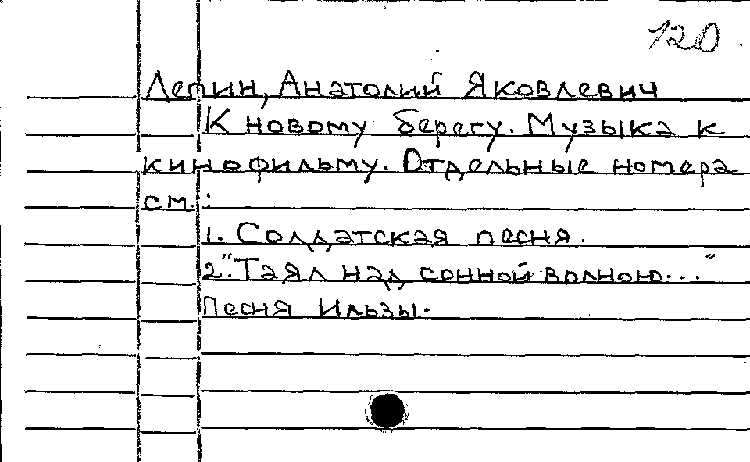 120
Лепин, Анатолий Яковлевич
К новому берегу. Музыка к
кинофильму. Отдельные номера
см.:
1. Солдатская песня.
2. "Таял над сонной волною..."
Песня Ильзы.